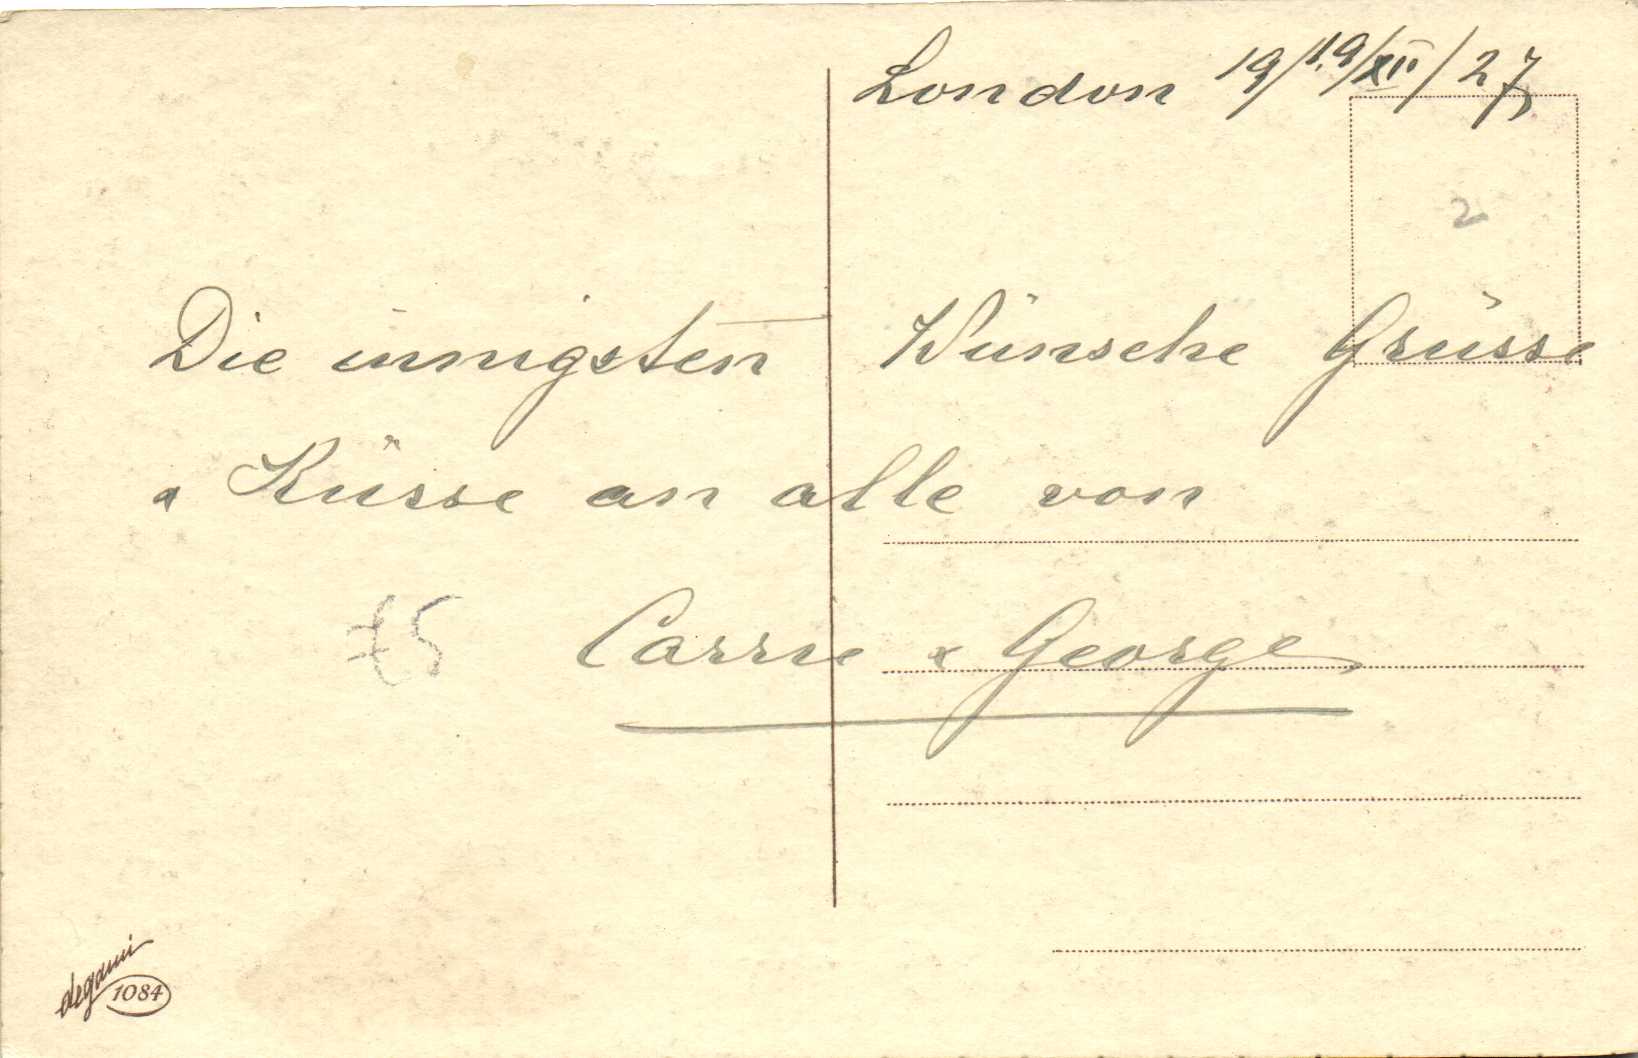 London 19/19/XII/27,
2
Die innigsten Wünsche Grüsse
& Küsse an alle von
£5
Carrie & George
degami
1084